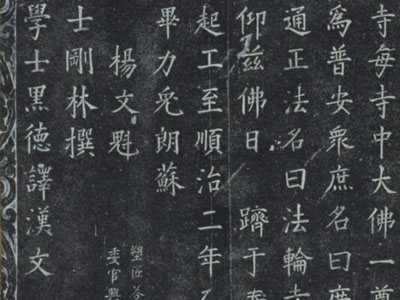 寺每寺中大佛一尊
爲普安衆庶名曰度
通正法名曰法輪寺
仰兹佛日 躋于春
起工至順治二年乙
畢力兔朗蘇
楊文魁
塑匠
委官
士剛林撰
學士黑德譯漢文